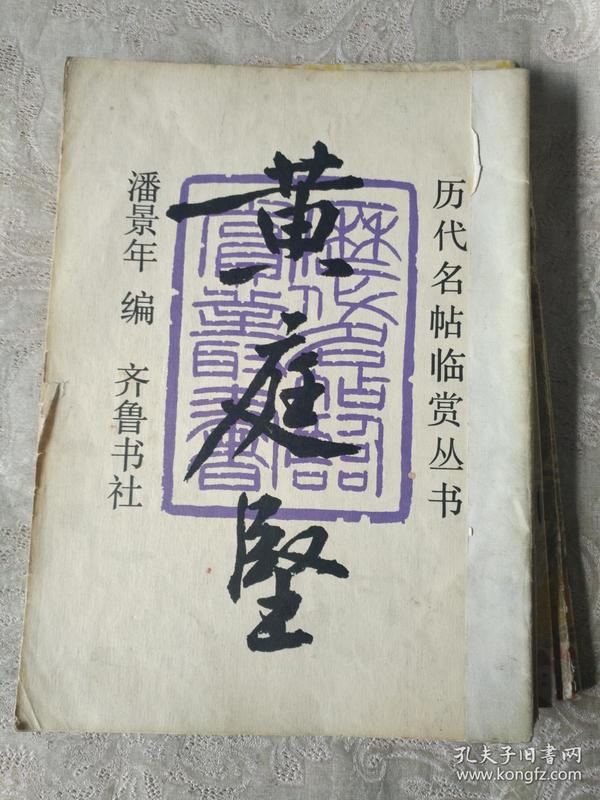 历代名帖临赏丛书
黄庭坚
潘景年 编 齐鲁书社
孔夫子旧书网
www.kongfz.com